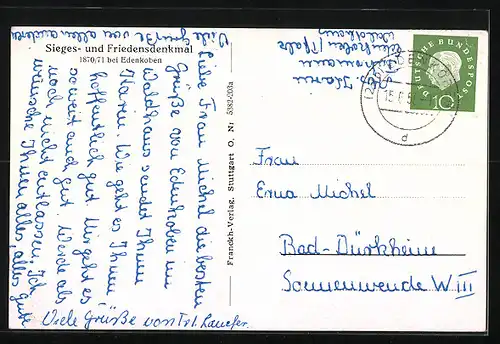 Sieges- und Friedensdenkmal
1870/71 bei Edenkoben
Liebe Frau Michel die besten
Grüße von Edenkoben im
Waldhaus sendet Ihnen
Karin. Wie geht es Ihnen
hoffentlich gut. Mir geht es
soweit auch gut. Werde als
noch nicht entlassen. Ich
wünsche Ihnen alles, alles Gute
Viele Grüße von allen anderen
Viele Grüße von Frl.
Franckh-Verlag, Stuttgart O. Nr 5382-203a
Karin
Edenkoben/Pfalz
Waldhaus
DEUTSCHE BUNDESPOST
10
d
Frau
Erna Michel
Bad-Dürkheim
Sonnenwende W III